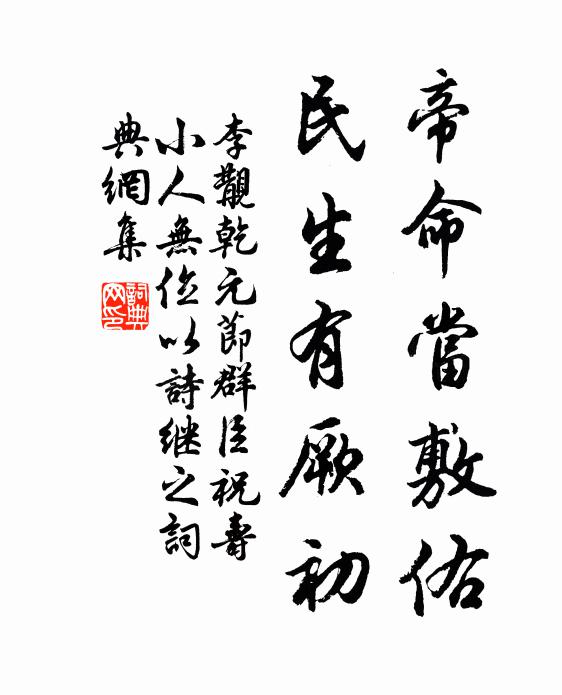 帝命當敷佑
民生有厥初
李覯乾元節群臣祝壽
小人無位以詩继之詞
典網集
詞典网印